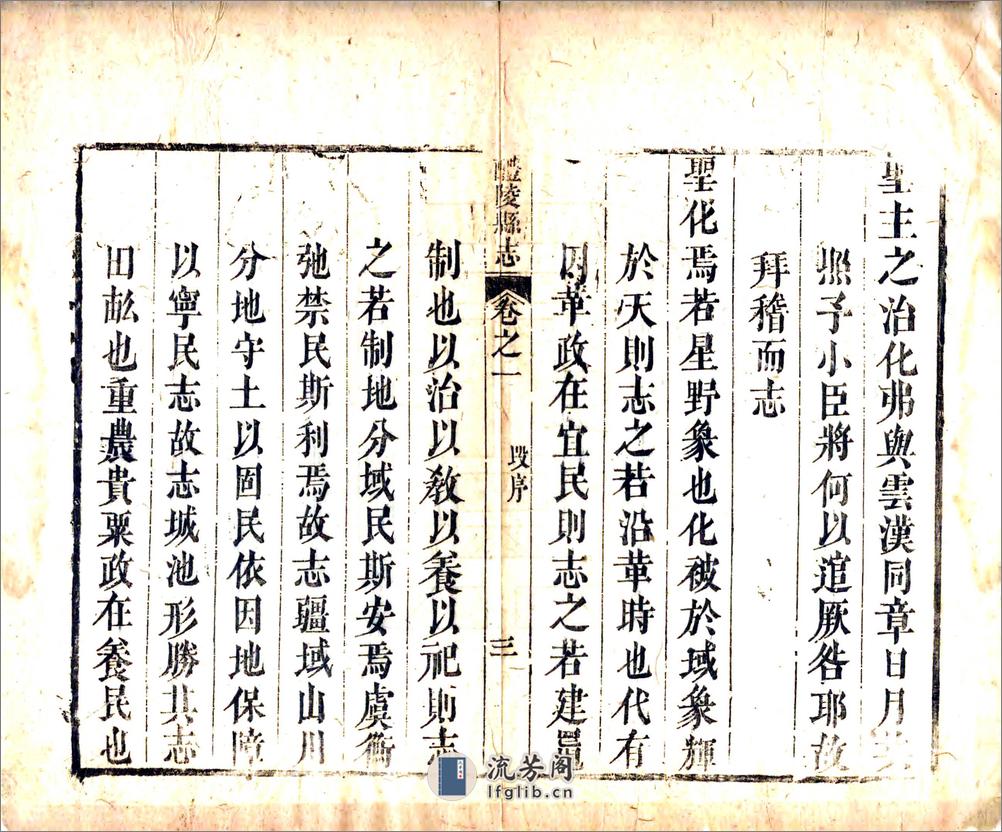 聖主之治化弗與雲漢同章日月
照予小臣將何以逭厥咎耶故
拜稽而志
聖化焉若星野象也化被於域象輝
於天則志之若沿革時也代有
因革政在宜民則志之若建置
醴陵縣志
卷之一
序
三
制也以治以敎以養以祀則志
之若制地分域民斯安焉虞衡
弛禁民斯利焉故志疆域山川
分地守土以固民依因地保障
以寧民志故志城池形勝其志
田畝也重農貴粟政在養民也
流芳阁
lfglib.cn